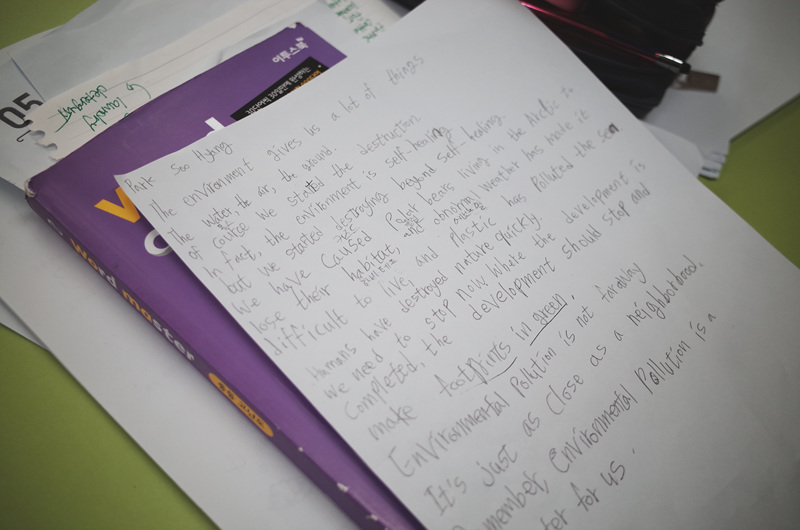 Park Soo Hyang
The environment gives us a lot of things
The water, the air, the ground.
of course we started the destruction
In fact, the environment is self-healing
but we started destroying beyond self-healing.
We have caused Polar bears living in the Arctic to
lose their habitat, and drying weather has make it
difficult to live, and Plastic has polluted the sea
Humans have destroyed nature quickly.
We need to stop now. Whate the development is
Completed, the development should stop and
make footprints in green.
Environmental Pollution is not faraway
It's just as close as a neighborhood.
emember, environmental Pollution is a
ter for us.
이투스북
word master
05
laundry
detergent